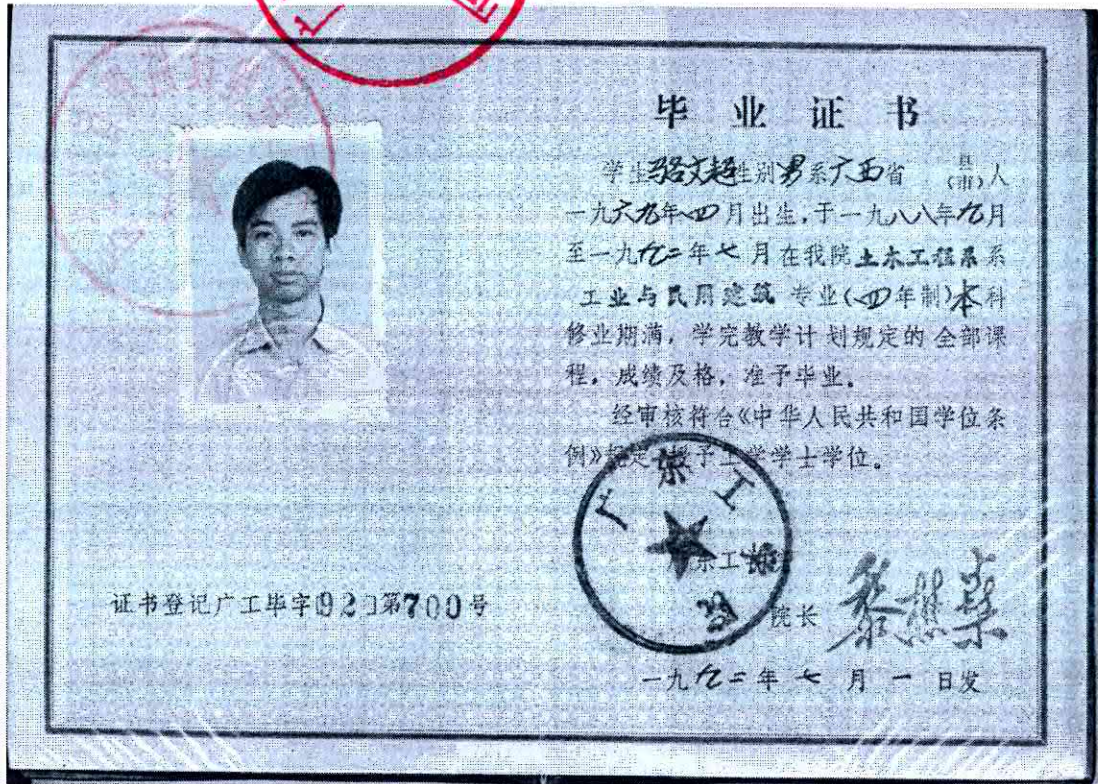 毕业证书
学生骆文超性别男系广西省 县(市)人
一九六九年四月出生,于一九八八年九月
至一九九二年七月在我院土木工程系系
工业与民用建筑 专业(四年制)本科
修业期满,学完教学计划规定的全部课
程,成绩及格,准予毕业。
经审核符合《中华人民共和国学位条
例》规定,授予工学学士学位。
广东工学院
院长
一九九二年七月一日发
证书登记广工毕字(92)第700号